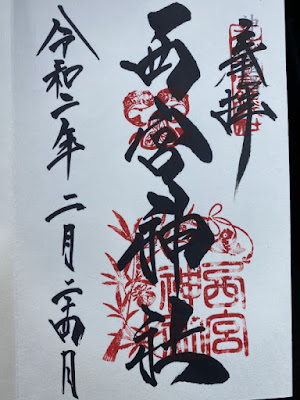 奉拝
西宮神社
令和二年 二月二十四日
西宮
神社